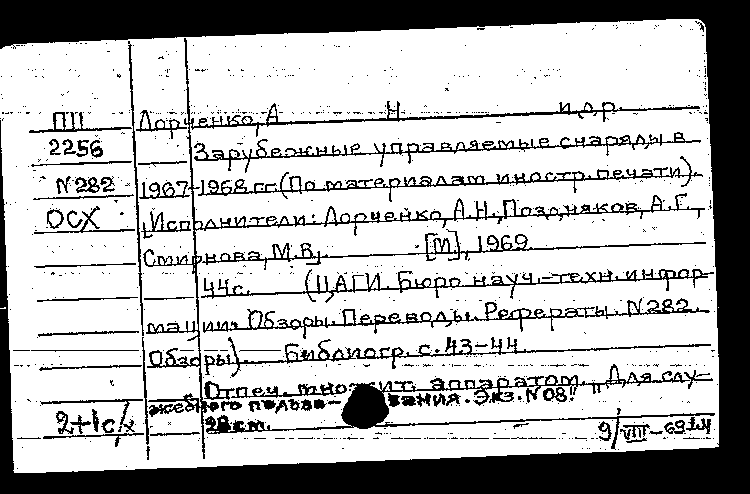 ПП Лорченко, А Н и др.
2256 Зарубежные управляемые снаряды в
N282 1967-1968 гг. (По материалам иностр. печати).
ОСХ [Исполнители: Лорченко, А.Н., Поздняков, А.Г.,
Смирнова, М.В]. [М], 1969.
44с. (ЦАГИ. Бюро науч.-техн. инфор-
мации. Обзоры. Переводы. Рефераты. N282.
Обзоры). Библиогр. с. 43-44.
Отпеч. множит. аппаратом. "Для слу-
жебного пользо- вания. Экз. N 08"
2+1с/х 28 cm. 9/VIII-69